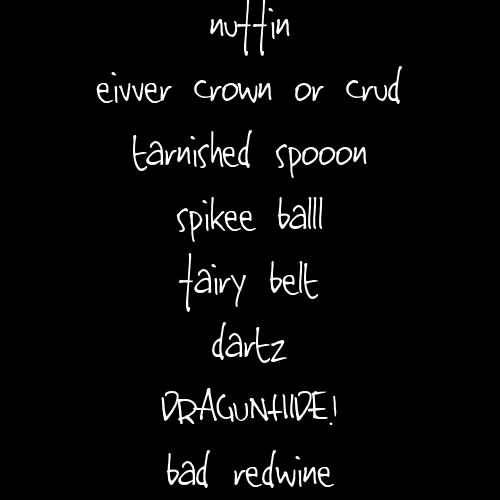 nuffin
eivver crown or crud
tarnished spooon
spikee balll
fairy belt
dartz
DRAGUNHIDE!
bad redwine